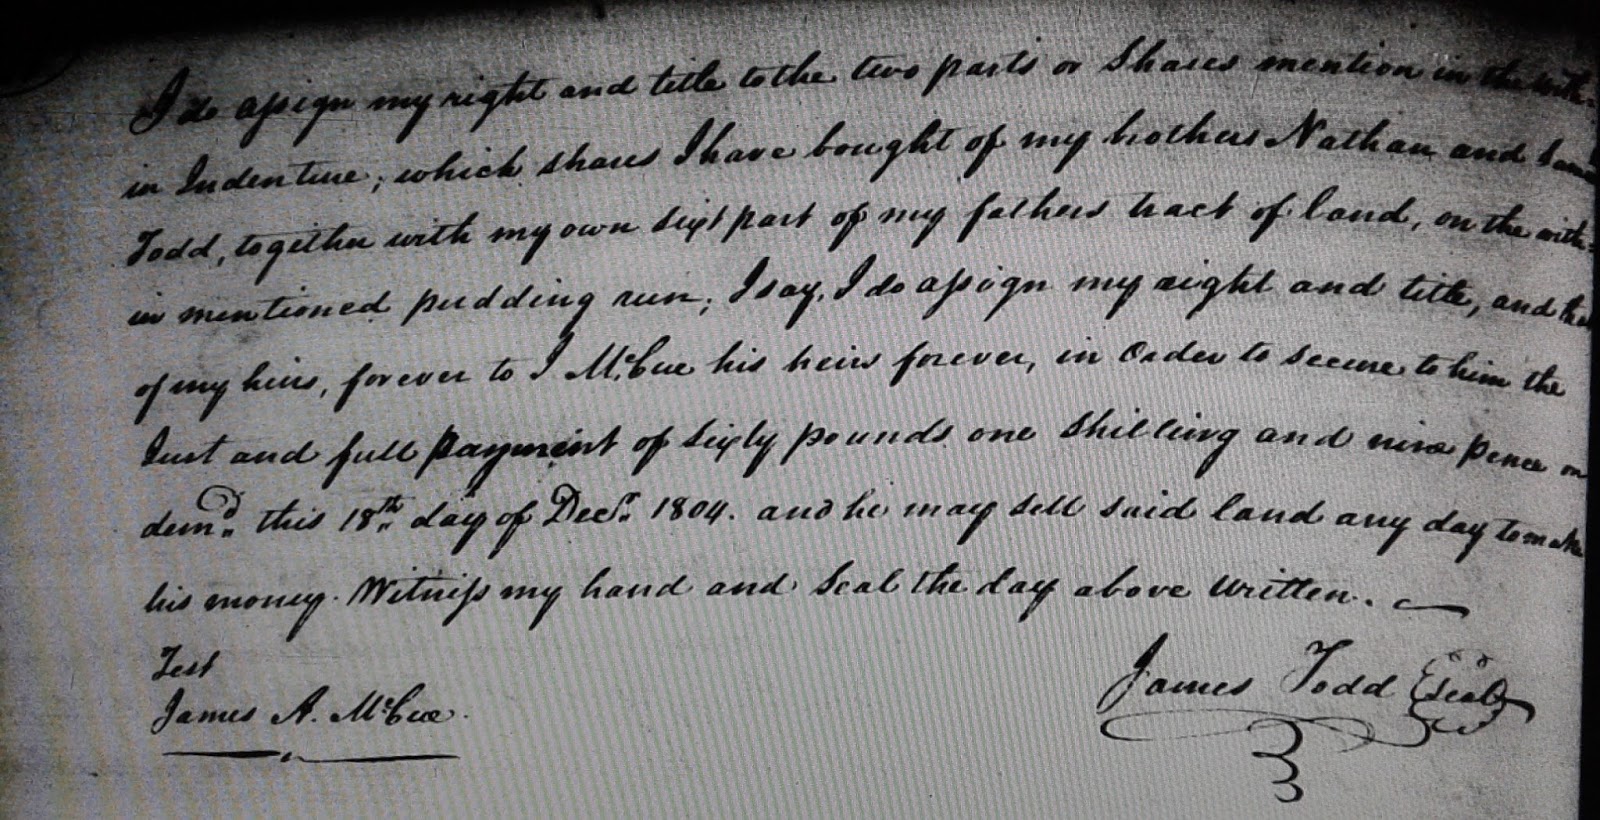 I do assign my right and title to the two parts or Shares mention in the with-
in Indenture; which shares I have bought of my brothers Nathan and
Todd, together with my own sixt part of my fathers tract of land, on the with-
in mentioned pudding run; I say, I do assign my right and title, and
of my heirs, forever to I McCue his heirs forever, in Order to secure to him the
Just and full payment of Sixty pounds one Shilling and nine pence on
demd. this 18th. day of Decr. 1804. and he may sell said land any day to make
his money. Witness my hand and Seal the day above written.
Test
James Todd Seal
James A. McCue.